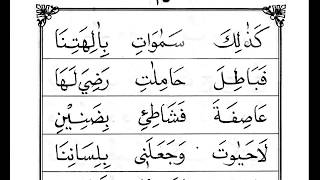 كَذٰلِكَ سَمٰوَاتٍ بِاٰلِهَتِنَا
قَبَاطِلَ حَامِلٰتِ رَضِيَ لَهَا
عَاصِفَةَ فَشَاطِئِ بِضَنِيْنٍ
لَاحَيٰوتَ وَجَعَلَنِي بِلِسَانِنَا